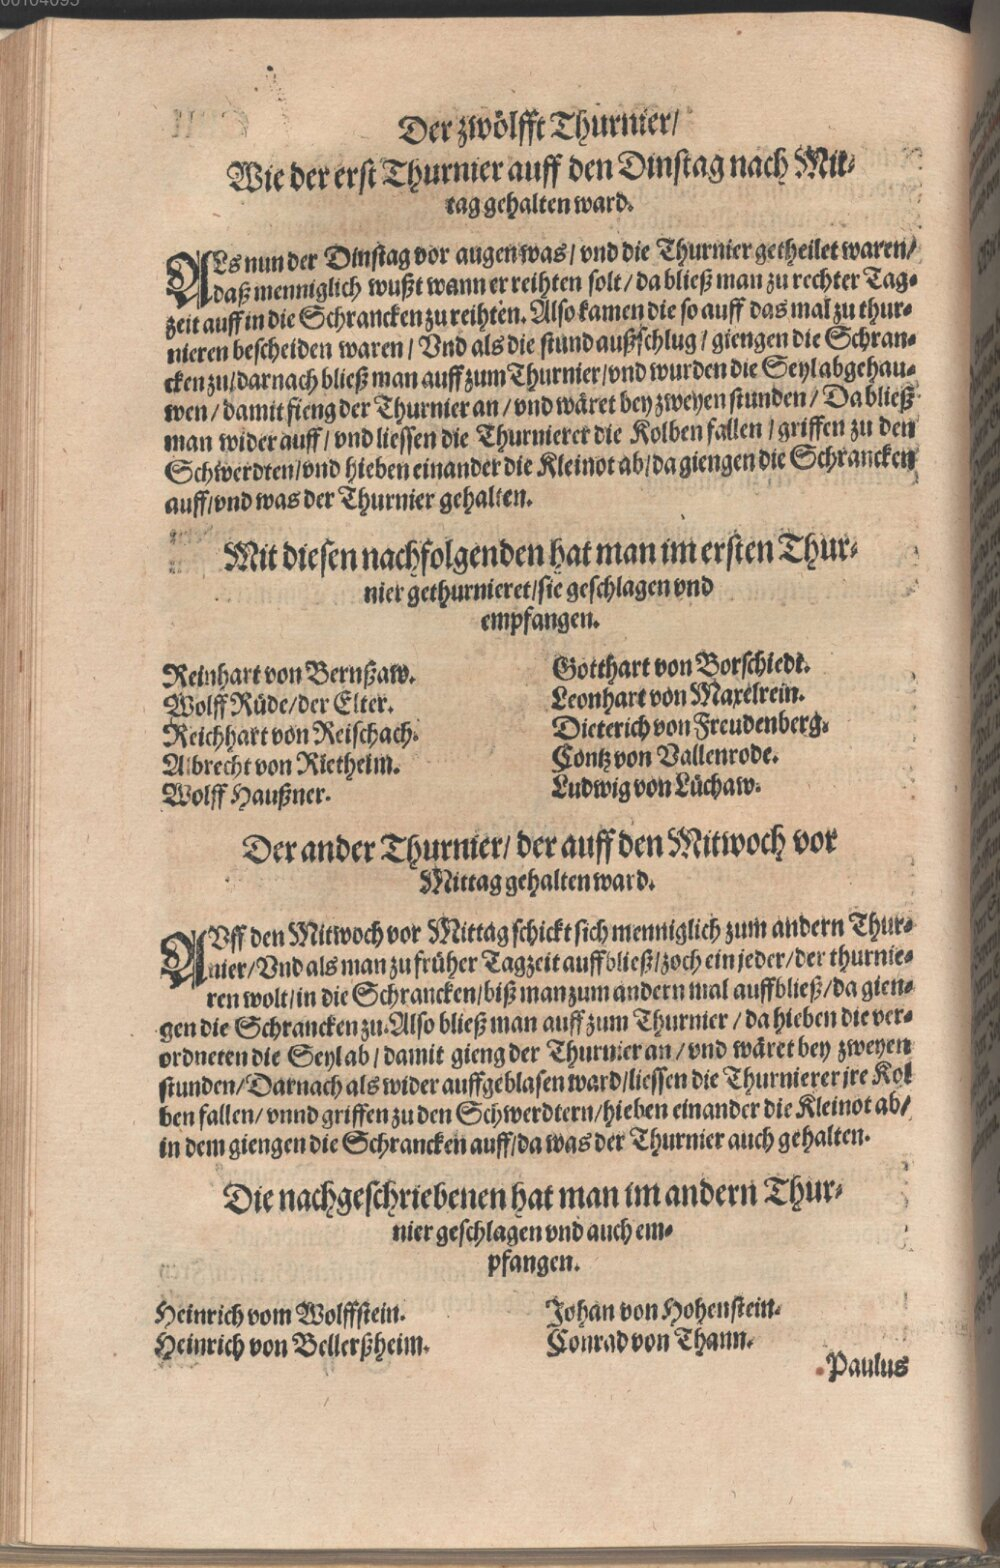 00104095
Der zwölfft Thurnier/
Wie der erst Thurnier auff den Dinstag nach Mit-
tag gehalten ward.
ALs nun der Dinstag vor augen was/ vnd die Thurnier getheilet waren/
daß menniglich wußt wann er reihten solt/ da bließ man zu rechter Tag-
zeit auff in die Schrancken zu reihten. Also kamen die so auff das mal zu thur-
nieren bescheiden waren/ Vnd als die stund außschlug/ giengen die Schran-
cken zu/ darnach bließ man auff zum Thurnier/ vnd wurden die Seyl abgehau-
wen/ damit fieng der Thurnier an/ vnd wäret bey zweyen stunden/ Da bließ
man wider auff/ vnd liessen die Thurnierer die Kolben fallen/ griffen zu den
Schwerdten/ vnd hieben einander die Kleinot ab/ da giengen die Schrancken
auff/ vnd was der Thurnier gehalten.
Mit diesen nachfolgenden hat man im ersten Thur-
nier gethurnieret/ sie geschlagen vnd
empfangen.
Reinhart von Bernßaw.
Wolff Rüde/ der Elter.
Reichhart von Reischach.
Albrecht von Rietheim.
Wolff Haußner.
Gotthart von Borschiedt.
Leonhart von Maxelrein.
Dieterich von Freudenberg.
Contz von Vallenrode.
Ludwig von Lüchaw.
Der ander Thurnier/ der auff den Mitwoch vor
Mittag gehalten ward.
AVff den Mitwoch vor Mittag schickt sich menniglich zum andern Thur-
nier/ Vnd als man zu früher Tagzeit auffbließ/ zoch ein jeder/ der thurnie-
ren wolt/ in die Schrancken/ biß man zum andern mal auffbließ/ da gien-
gen die Schrancken zu. Also bließ man auff zum Thurnier/ da hieben die ver-
ordneten die Seyl ab/ damit gieng der Thurnier an/ vnd wäret bey zweyen
stunden/ Darnach als wider auffgeblasen ward/ liessen die Thurnierer jre Kol
ben fallen/ vnnd griffen zu den Schwerdtern/ hieben einander die Kleinot ab/
in dem giengen die Schrancken auff/ da was der Thurnier auch gehalten.
Die nachgeschriebenen hat man im andern Thur-
nier geschlagen vnd auch em-
pfangen.
Heinrich vom Wolffstein.
Heinrich von Bellerßheim.
Johan von Hohenstein.
Conrad von Thann.
Paulus